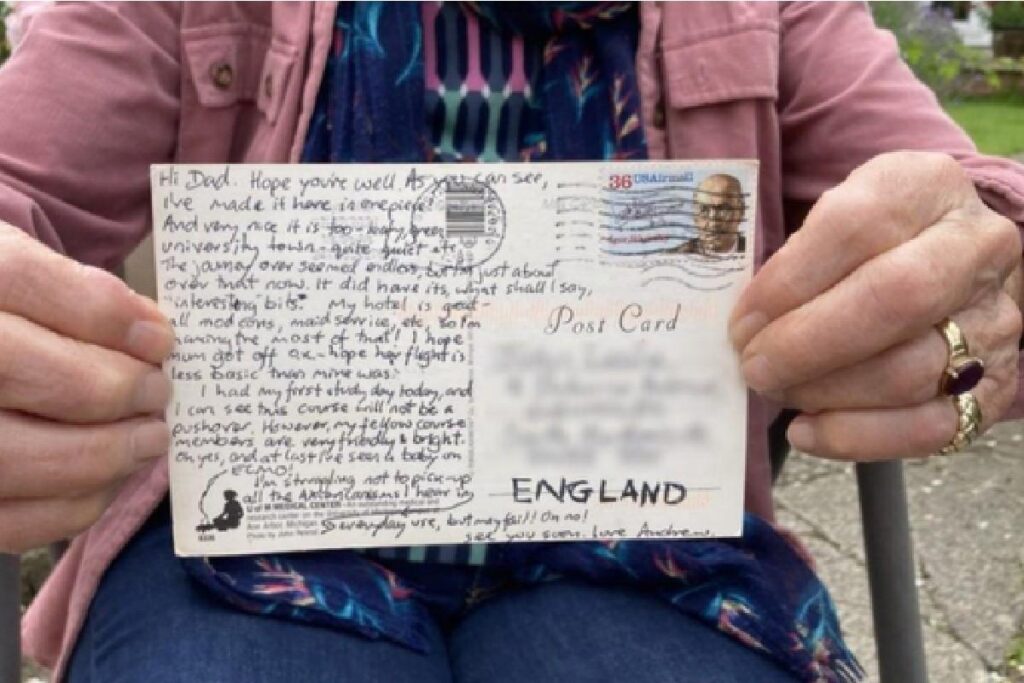 Hi Dad. Hope you're well. As you can see,
I've made it here in one piece!
And very nice it is too - leafy, green
university town - quite quiet etc.
The journey over seemed endless, but I'm just about
over that now. It did have its, what shall I say,
"interesting bits". My hotel is great -
all mod cons, maid service, etc, so I'm
making the most of that! I hope
mum got off ok - hope her flight is
less basic than mine was.
I had my first study day today, and
I can see this course will not be a
pushover. However, my fellow course
members are very friendly & bright.
Oh yes, and at last I've seen a baby on
ECMO!
I'm struggling not to pick up
all the Americanisms I hear in
so everyday use, but may fail! Oh no!
See you soon. Love
U of M MEDICAL CENTER
Ann Arbor, Michigan
Photo by John
36 USAirmail
Post Card
ENGLAND